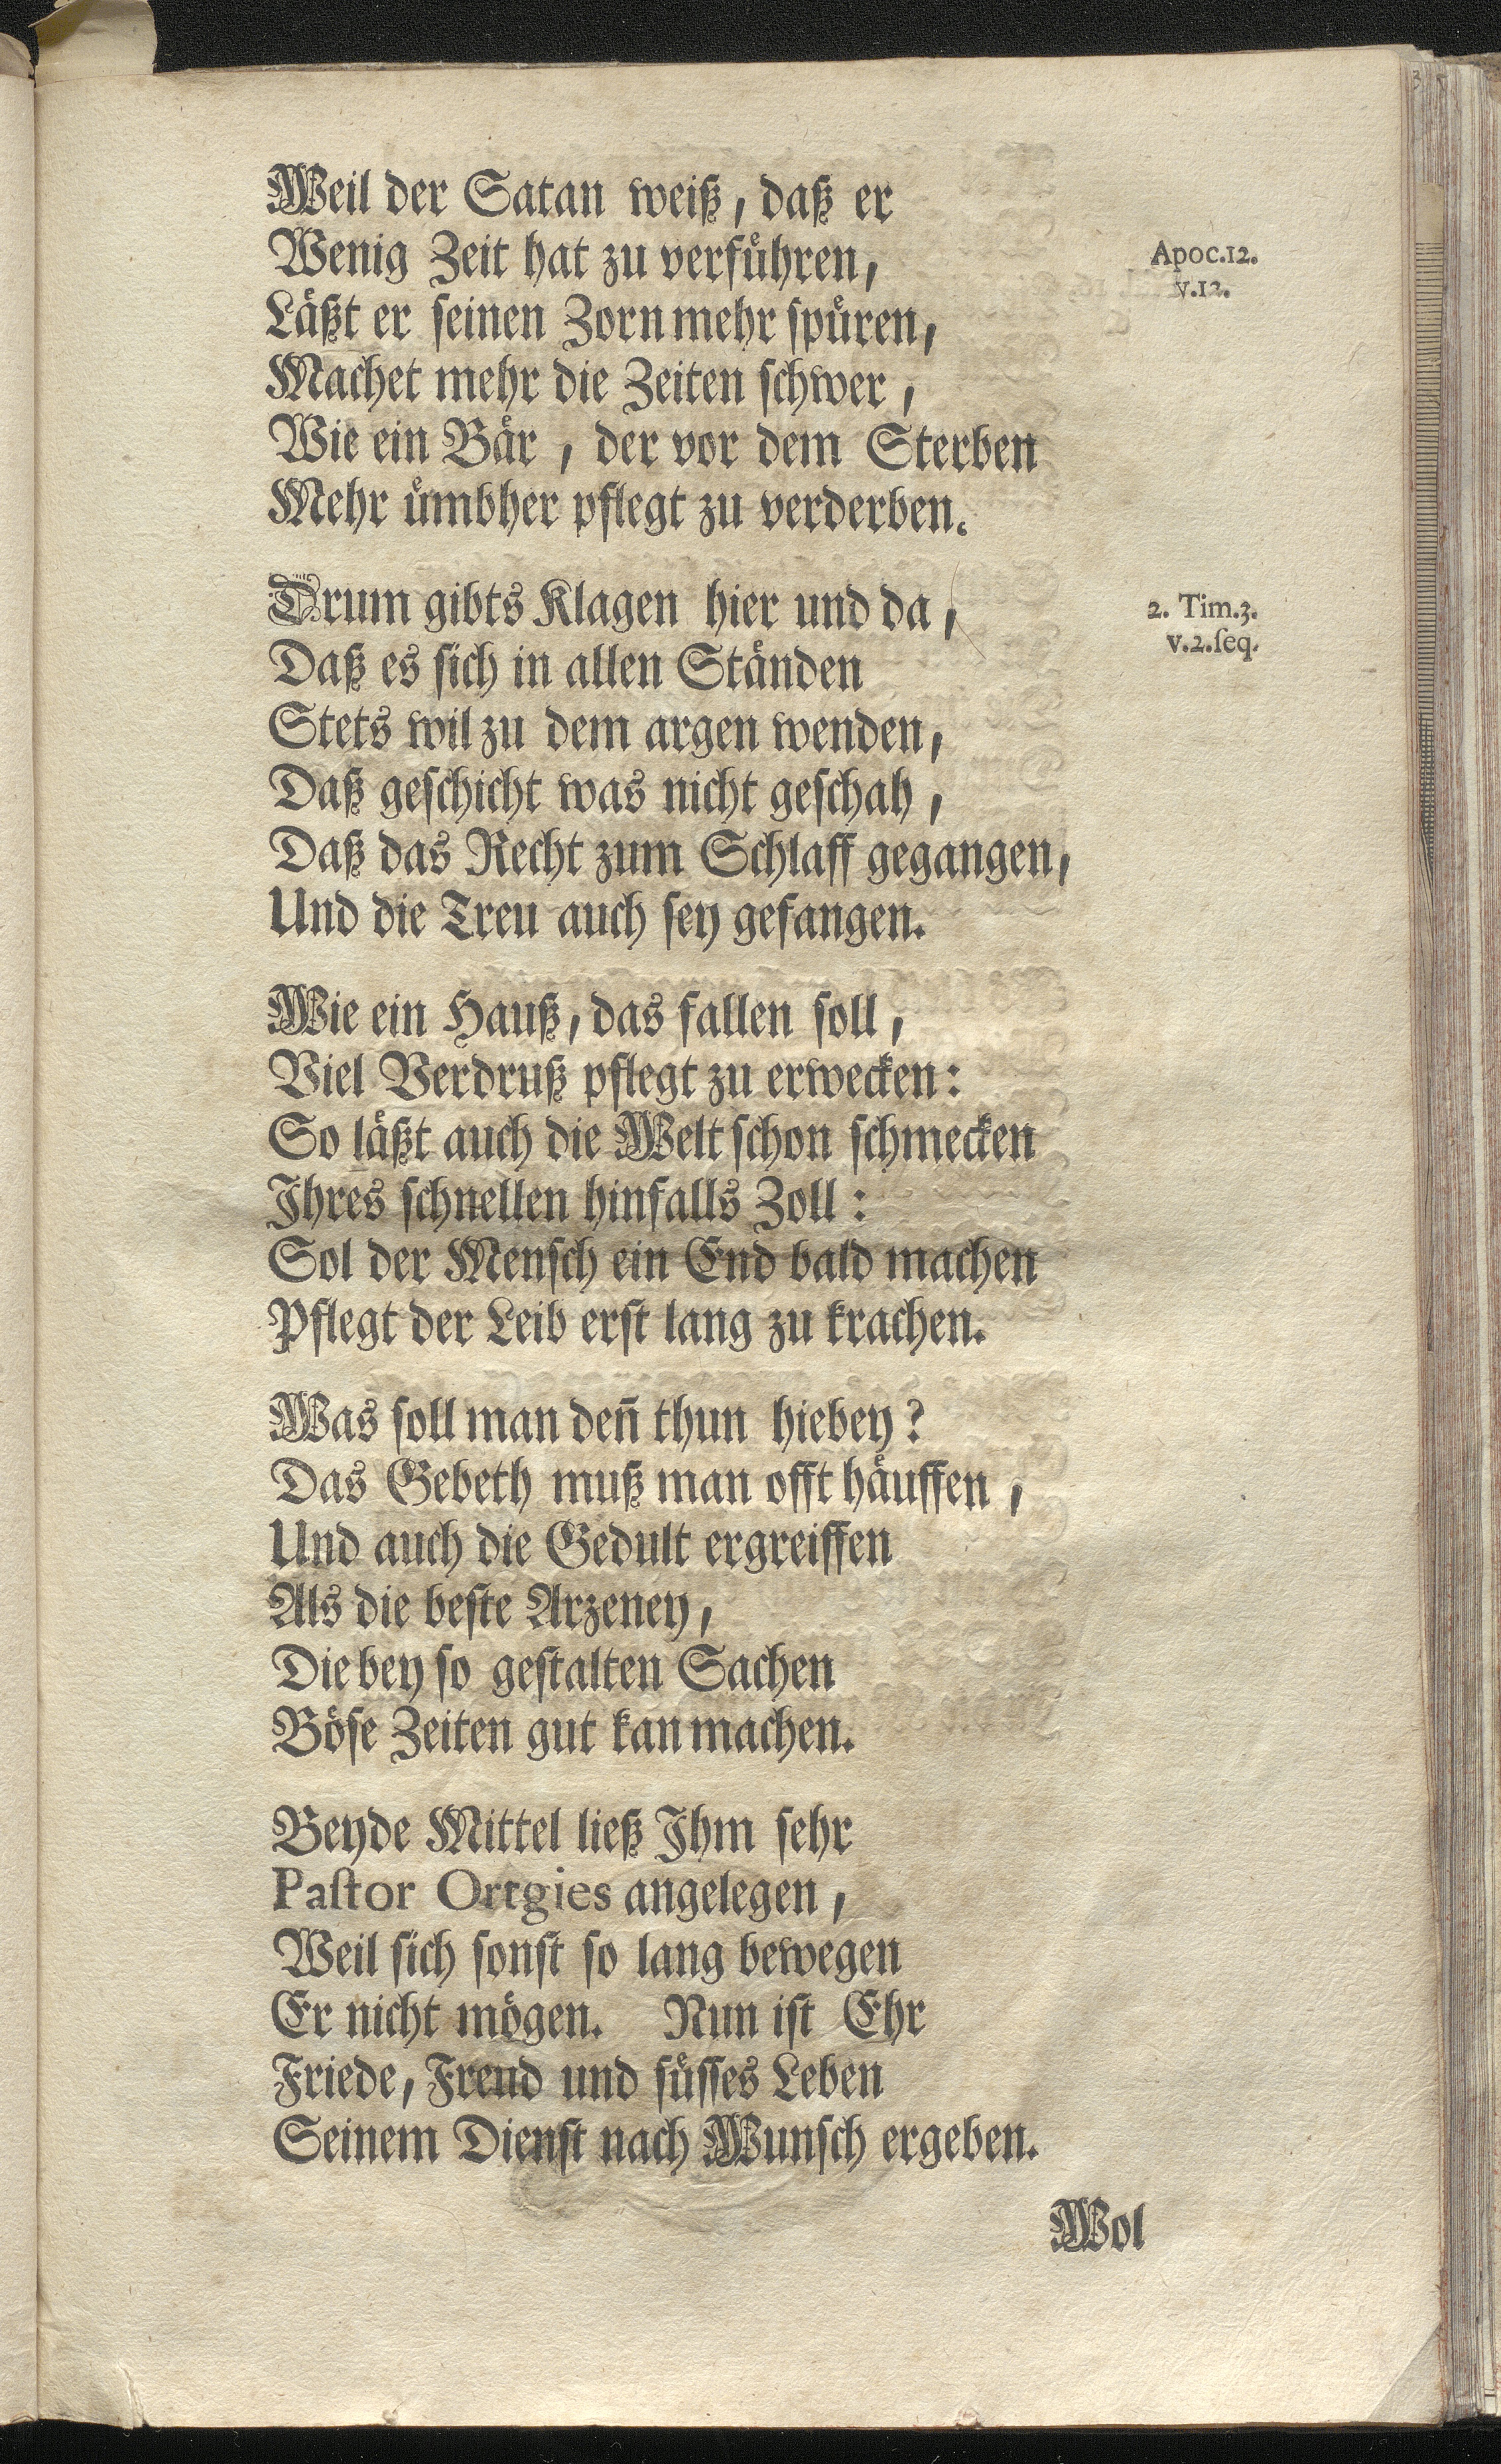 Weil der Satan weiß, daß er
Wenig Zeit hat zu verführen,
Apoc.12.
v.12.
Läßt er seinen Zorn mehr spüren,
Machet mehr die Zeiten schwer,
Wie ein Bär, der vor dem Sterben
Mehr ümbher pflegt zu verderben.
Drum gibts Klagen hier und da,
2. Tim.3.
v.2.seq.
Daß es sich in allen Ständen
Stets wil zu dem argen wenden,
Daß geschicht was nicht geschah,
Daß das Recht zum Schlaff gegangen,
Und die Treu auch sey gefangen.
Wie ein Hauß, das fallen soll,
Viel Verdruß pflegt zu erwecken:
So läßt auch die Welt schon schmecken
Ihres schnellen hinfalls Zoll:
Sol der Mensch ein End bald machen
Pflegt der Leib erst lang zu krachen.
Was soll man deñ thun hiebey?
Das Gebeth muß man offt häuffen,
Und auch die Gedult ergreiffen
Als die beste Arzeney,
Die bey so gestalten Sachen
Böse Zeiten gut kan machen.
Beyde Mittel ließ Ihm sehr
Pastor Ortgies angelegen,
Weil sich sonst so lang bewegen
Er nicht mögen. Nun ist Ehr
Friede, Freud und süsses Leben
Seinem Dienst nach Wunsch ergeben.
Wol